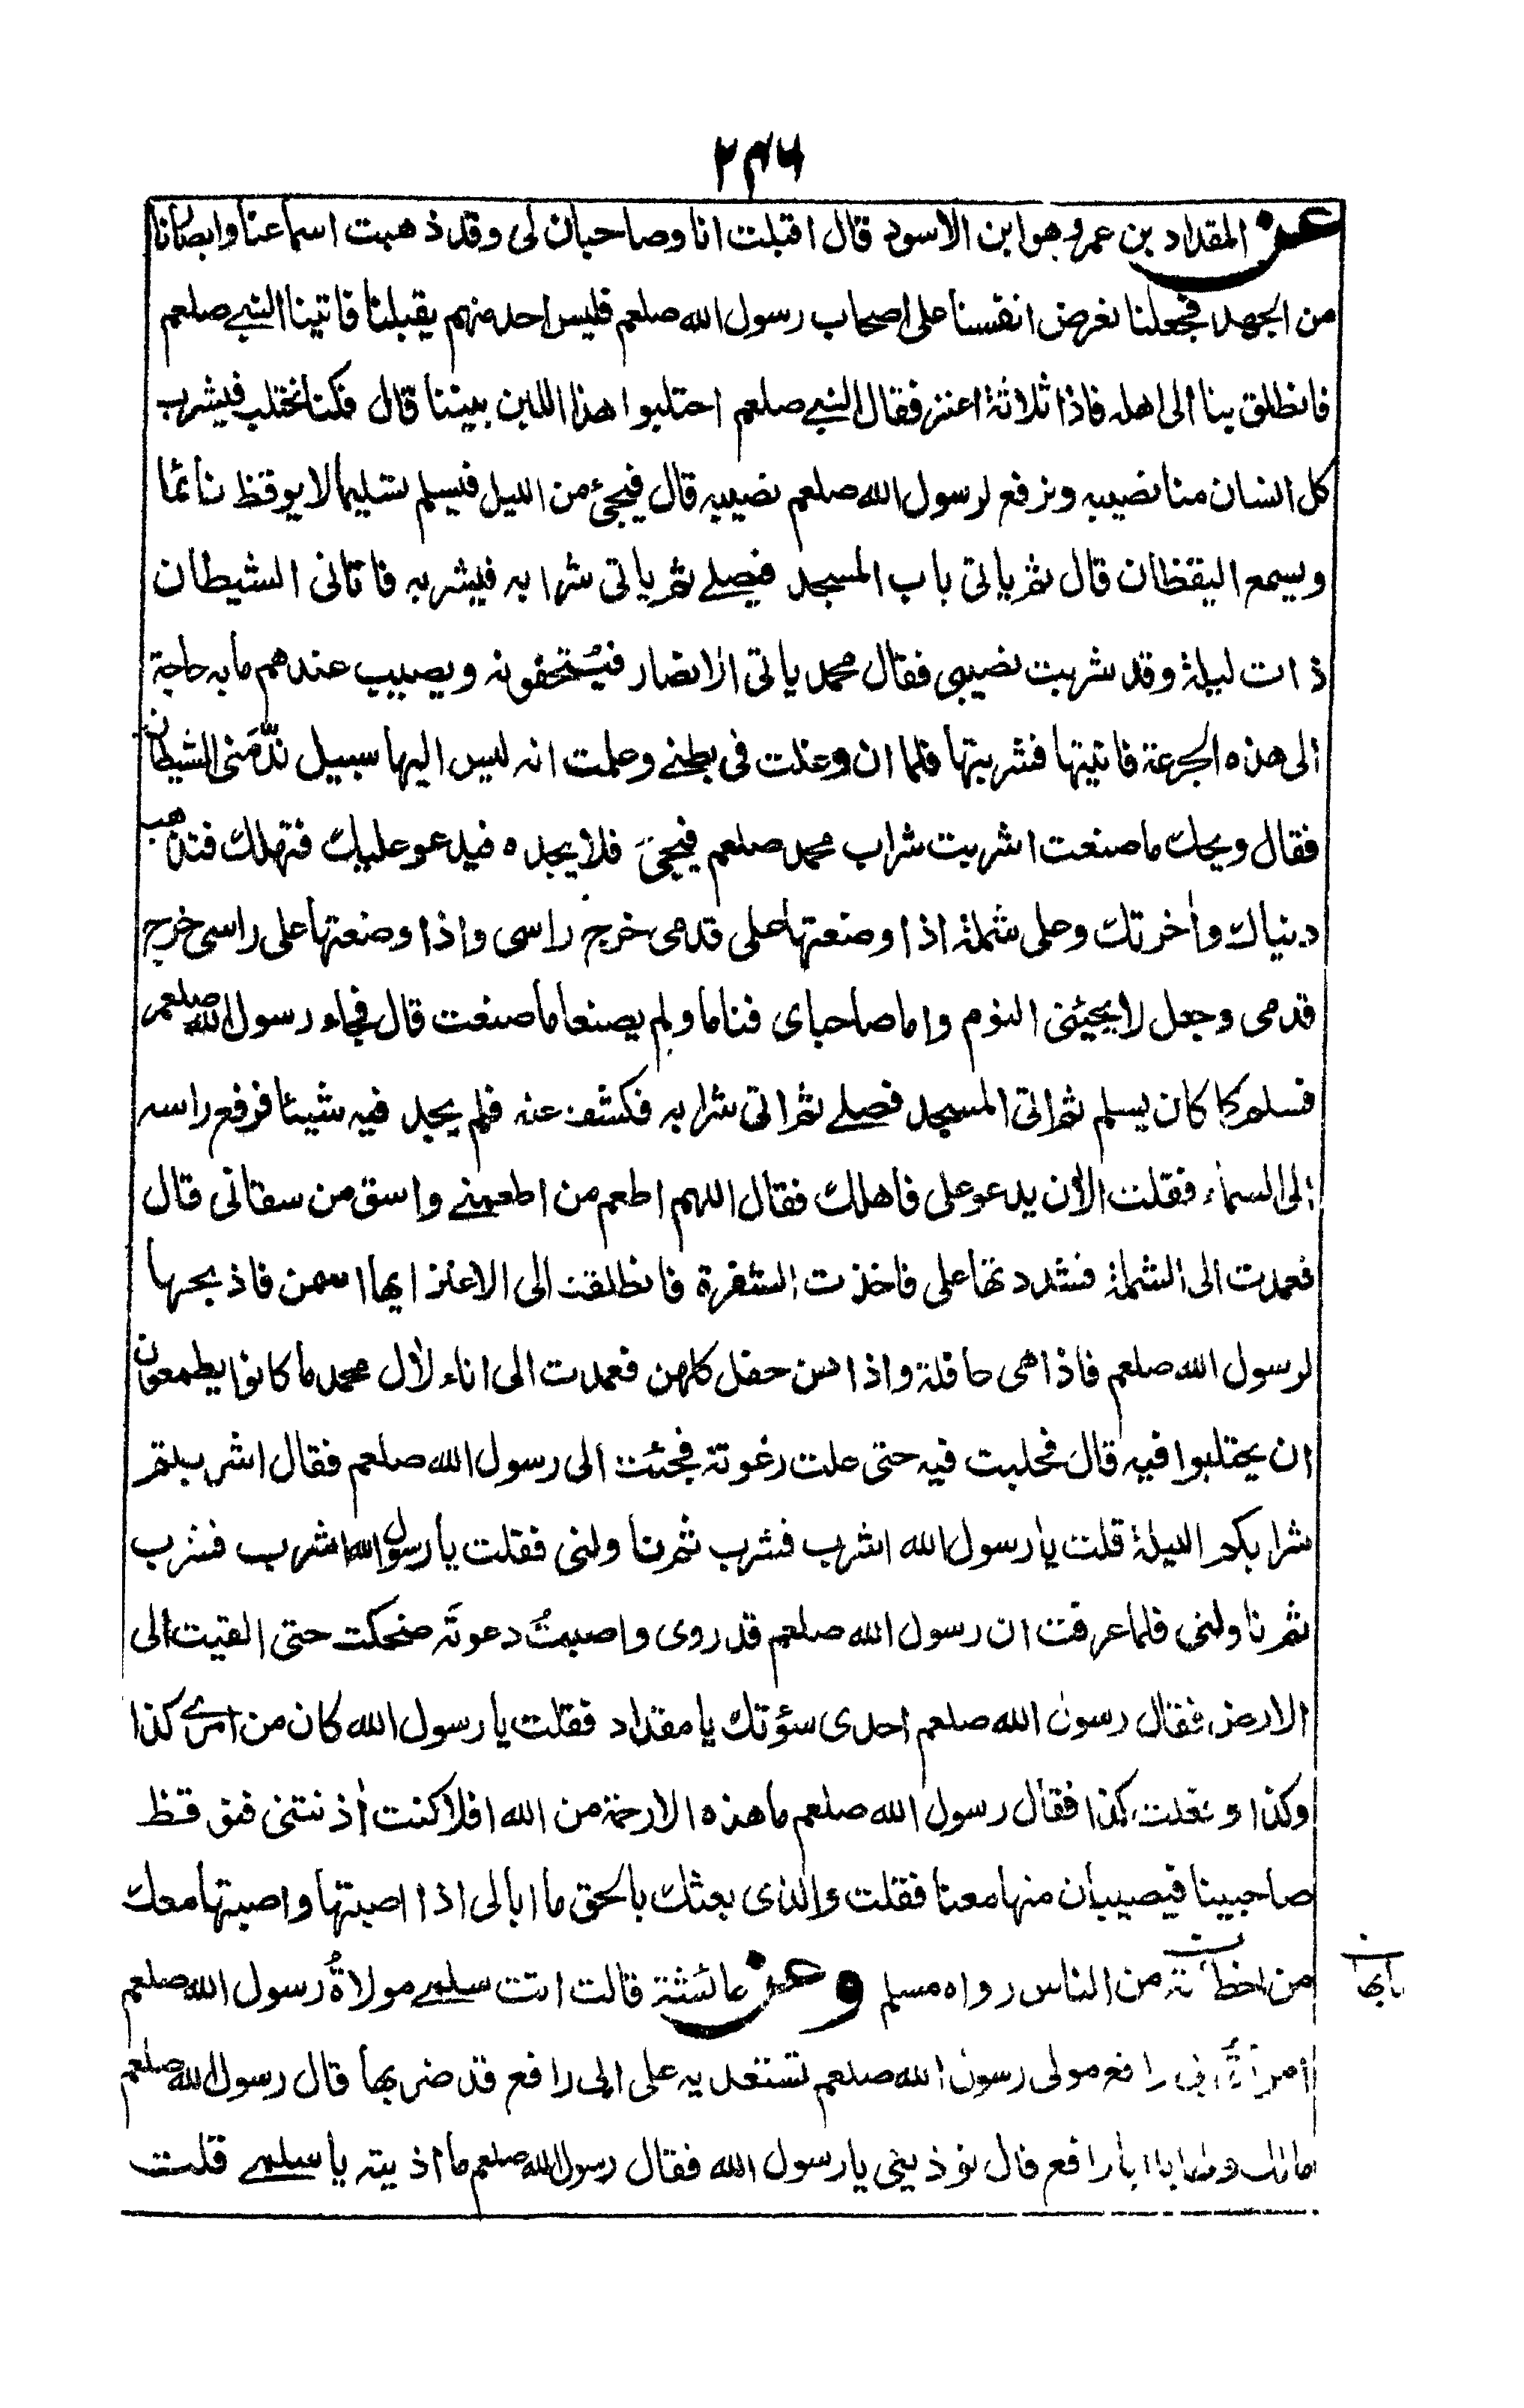 ۲۳۶
عن المقداد بن عمرو هو ابن الاسود قال اقبلت انا وصاحبان لى وقد ذهبت اسماعنا وابصارنا
من الجهد فجعلنا نعرض انفسنا على اصحاب رسول الله صلعم فليس احد منهم يقبلنا فاتينا النبى صلعم
فانطلق بنا الى اهله فاذا ثلاثة اعنز فقال النبى صلعم احتلبوا هذا اللبن بيننا قال فكنا نحتلب فيشرب
كل انسان منا نصيبه ونرفع لرسول الله صلعم نصيبه قال فيجئ من الليل فيسلم تسليما لا يوقظ نائما
ويسمع اليقظان قال ثم ياتى باب المسجد فيصلى ثم ياتى شرابه فيشربه فاتانى الشيطان
ذات ليلة وقد شربت نصيبى فقال محمد ياتى الانصار فيُتحفونه ويصيب عندهم ما به حاجة
الى هذه الجرعة فاتيتها فشربتها فلما ان وغلت فى بطنى وعلمت انه ليس اليها سبيل ندّمَنى الشيطان
فقال ويحك ما صنعت اشربت شراب محمد صلعم فيجئ فلا يجده فيدعو عليك فتهلك فتذهب
دنياك واخرتك وعلى شملة اذا وضعتها على قدمى خرج راسى واذا وضعتها على راسى خرج
قدمى وجعل لا يجيئنى النوم واما صاحباى فناما ولم يصنعا ما صنعت قال فجاء رسول الله صلعم
فسلم كما كان يسلم ثم اتى المسجد فصلى ثم اتى شرابه فكشف عنه فلم يجد فيه شيئا فرفع راسه
الى السماء فقلت الأن يدعو على فاهلك فقال اللهم اطعم من اطعمنى واسق من سقانى قال
فعمدت الى الشملة فشددتها على فاخذت الشفرة فانطلقت الى الاعنز ايها اسمن فاذبحها
لرسول الله صلعم فاذا هى حافلة واذا هن حفل كلهن فعمدت الى اناء لأل محمد ما كانوا يطمعون
ان يحتلبوا فيه قال فحلبت فيه حتى علت رغوته فجئت الى رسول الله صلعم فقال اشربتم
شرابكم الليلة قلت يا رسول الله اشرب فشرب ثم ناولنى فقلت يا رسول الله اشرب فشرب
ثم ناولنى فلما عرفت ان رسول الله صلعم قد روى واصبتُ دعوتَه ضحكت حتى القيت الى
الارض فقال رسول الله صلعم احدى سؤتك يا مقداد فقلت يا رسول الله كان من امرى كذا
وكذا وفعلت كذا فقال رسول الله صلعم ما هذه الا رحمة من الله افلا كنت أذنتنى فنوقظ
صاحبينا فيصيبان منها معنا فقلت والذى بعثك بالحق ما ابالى اذا اصبتها واصبتها معك
من اخطأته من الناس رواه مسلم وعن عائشة قالت اتت سلمى مولاةُ رسول الله صلعم
امرأةُ ابى رافع مولى رسول الله صلعم تستعديه على ابى رافع قد ضربها قال رسول الله صلعم
مالك ولها يا ابا رافع قال تؤذينى يا رسول الله فقال رسول الله صلعم ما اذيته يا سلمى قلت